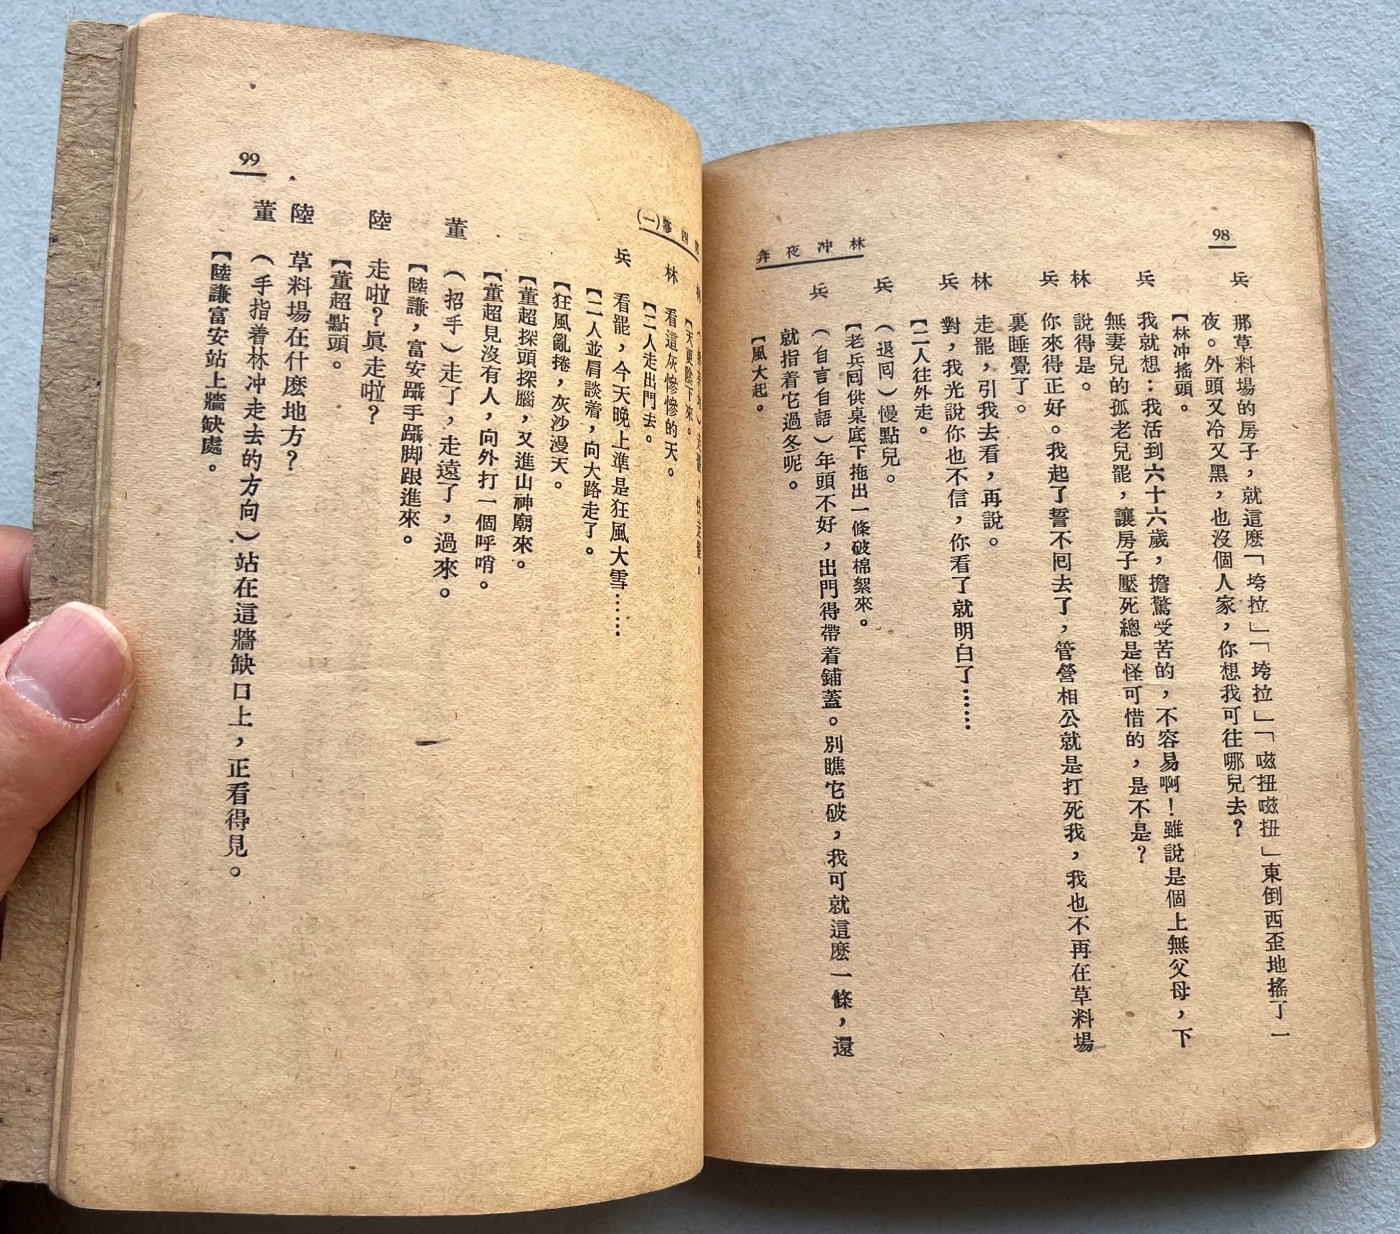 98
林冲夜奔
兵 那草料場的房子，就這麽「垮拉」「垮拉」「嗞扭嗞扭」東倒西歪地搖了一
夜。外頭又冷又黑，也沒個人家，你想我可往哪兒去？
【林冲搖頭。
兵 我就想：我活到六十六歲，擔驚受苦的，不容易啊！雖說是個上無父母，下
無妻兒的孤老兒罷，讓房子壓死總是怪可惜的，是不是？
林 說得是。
兵 你來得正好。我起了誓不囘去了，管營相公就是打死我，我也不再在草料場
裏睡覺了。
林 走罷，引我去看，再說。
兵 對，我光說你也不信，你看了就明白了……
【二人往外走。
兵 （退囘）慢點兒。
【老兵囘供桌底下拖出一條破棉絮來。
兵 （自言自語）年頭不好，出門得帶着鋪蓋。別瞧它破，我可就這麽一條，還
就指着它過冬呢。
【風大起。
四幕（一）
【天更陰下來。
林 看這灰慘慘的天。
【二人走出門去。
兵 看罷，今天晚上準是狂風大雪……
【二人並肩談着，向大路走了。
【狂風亂捲，灰沙漫天。
【董超探頭探腦，又進山神廟來。
【董超見沒有人，向外打一個呼哨。
董 （招手）走了，走遠了，過來。
【陸謙，富安躡手躡脚跟進來。
陸 走啦？眞走啦？
【董超點頭。
陸 草料場在什麽地方？
董 （手指着林冲走去的方向）站在這牆缺口上，正看得見。
【陸謙富安站上牆缺處。
99